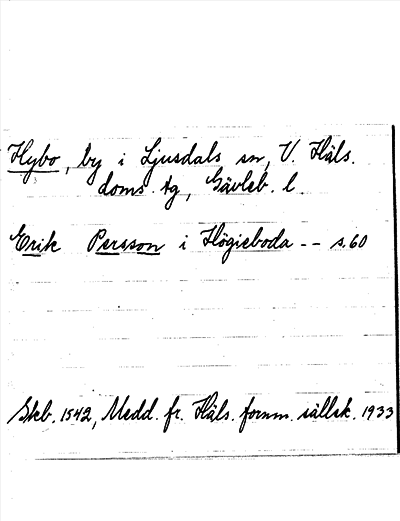 Hybo, by i Ljusdals sn, V. Häls.
doms. tg, Gävleb. l.
Erik Persson i Högieboda -- s. 60
Skb. 1542, Medd. fr. Häls. fornm. sällsk. 1933